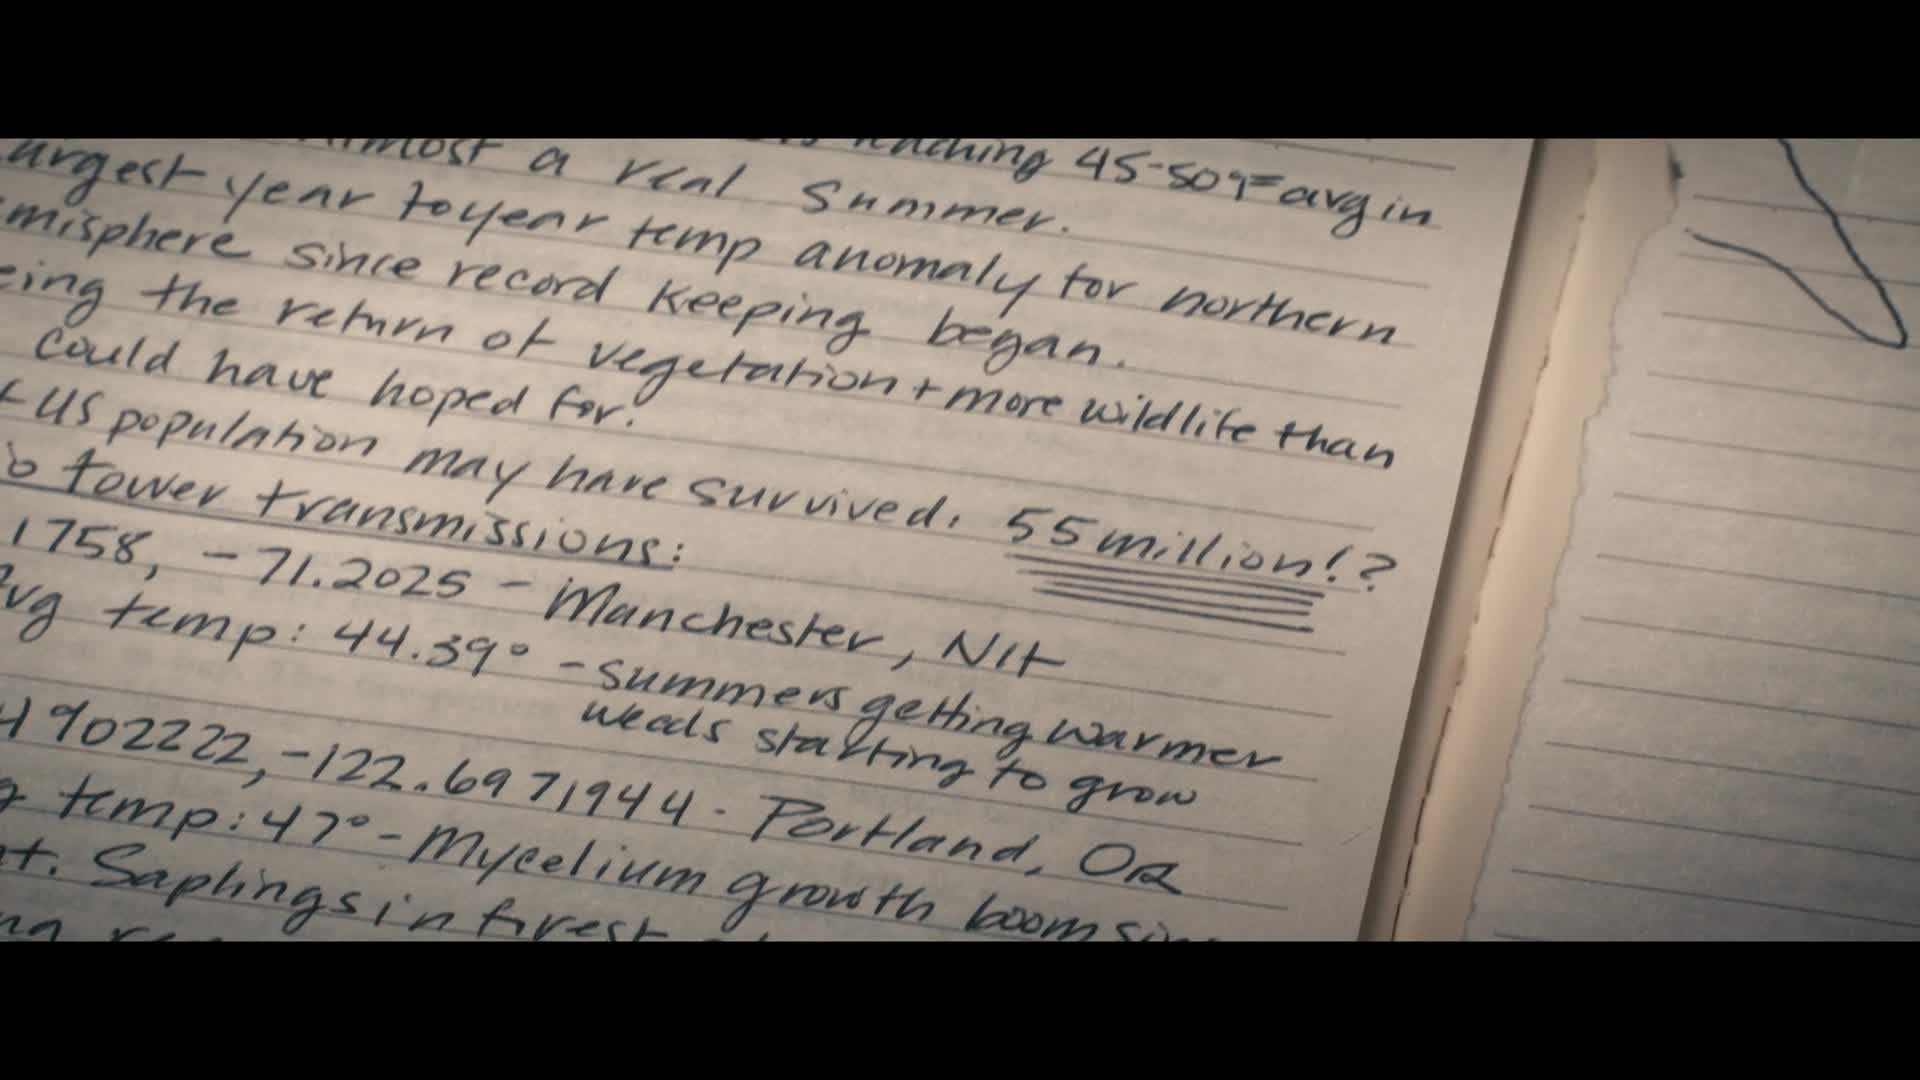 reaching 45-50°F avg in
Almost a real Summer.
largest year to year temp anomaly for northern
misphere since record keeping began.
eing the return of vegetation + more wildlife than
could have hoped for.
US population may have survived. 55 million!?
o tower transmissions:
1758, -71.2025 - Manchester, NH
avg temp: 44.39° - summers getting warmer
weeds starting to grow
4902222, -122.6971944 - Portland, OR
g temp: 47° - Mycelium growth boom
nt. Saplings in forest